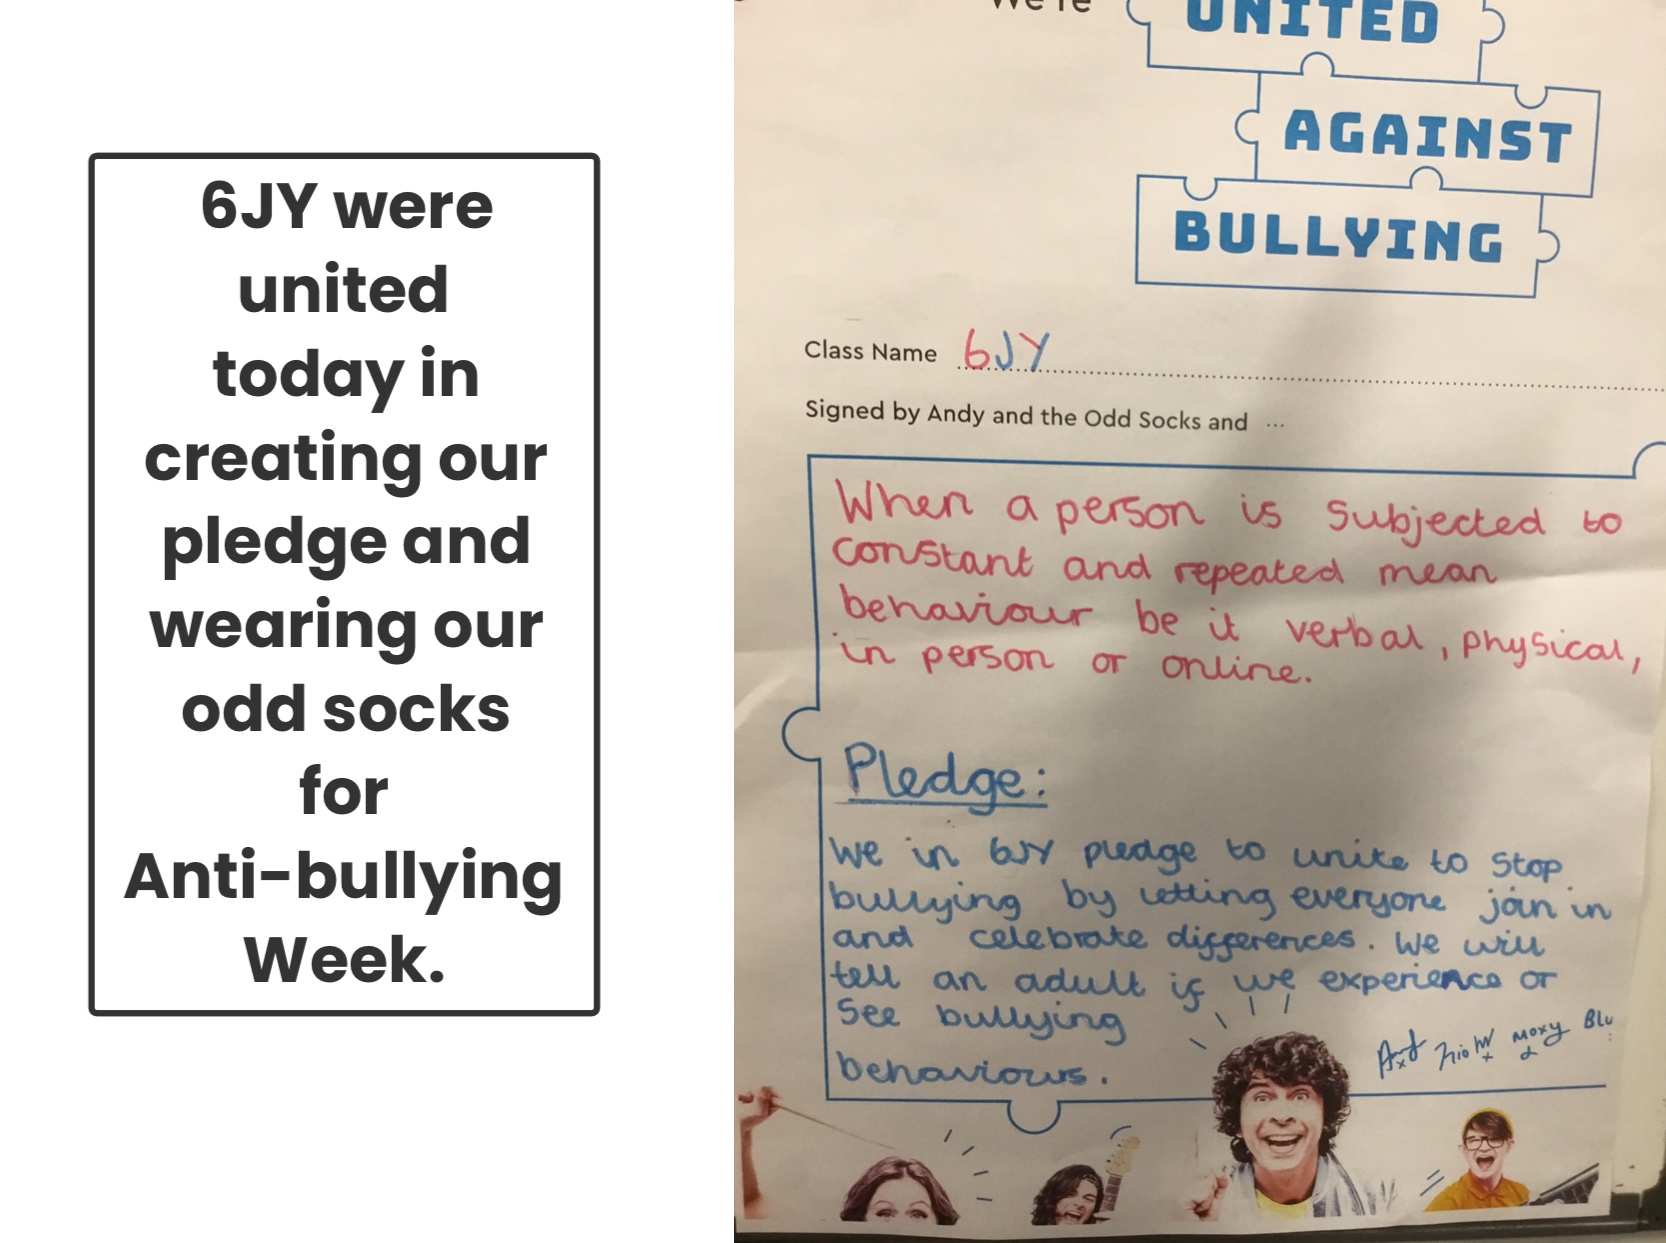 6JY were
united
today in
creating our
pledge and
wearing our
odd socks
for
Anti-bullying
Week.
We're
UNITED
AGAINST
BULLYING
Class Name 6JY
Signed by Andy and the Odd Socks and ...
When a person is subjected to
constant and repeated mean
behaviour be it verbal, physical,
in person or online.
Pledge:
We in 6JY pledge to unite to stop
bullying by letting everyone join in
and celebrate differences. We will
tell an adult if we experience or
see bullying
behaviours.
Moxy Blu